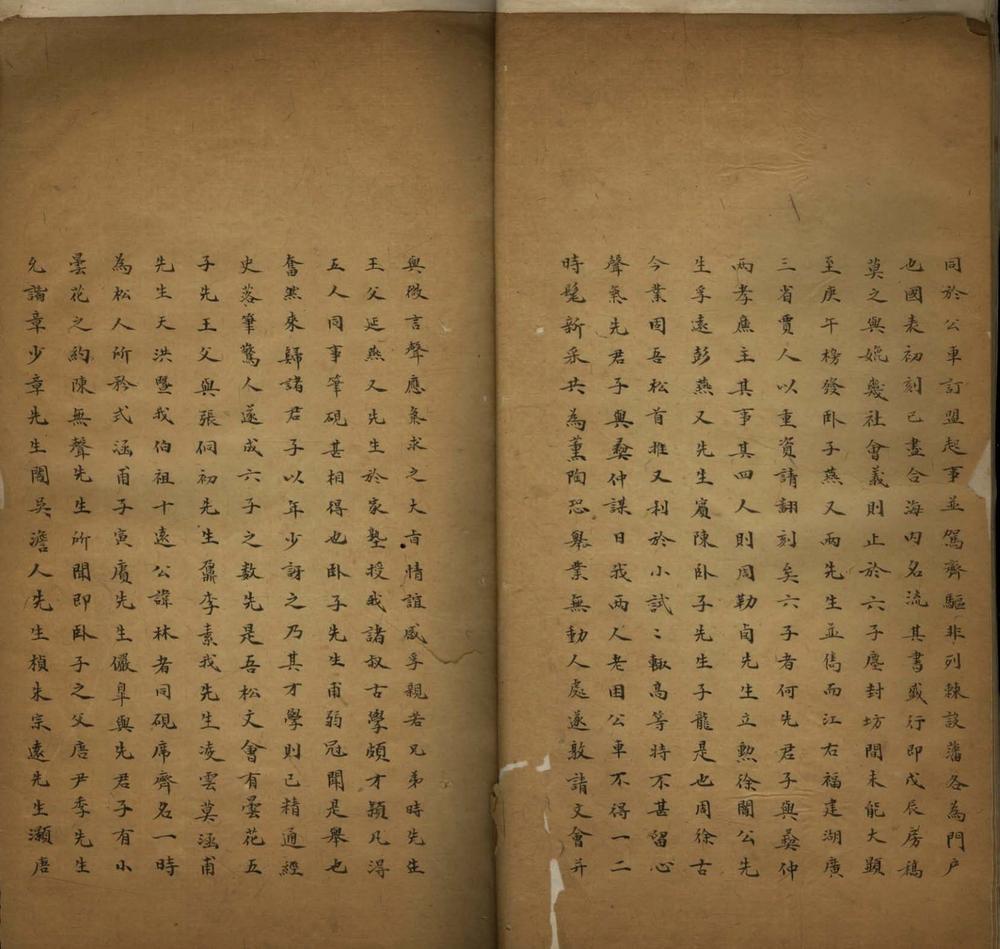 同於公車訂盟起事並駕齊驅非列棘設藩各為門戶
也國表初刻已盡合海内名流其書盛行即戊辰房稿
莫之與媲幾社會義則止於六子塵封坊間未能大顯
至庚午榜發卧子燕又兩先生並雋而江右福建湖廣
三省賈人以重資請翻刻矣六子者何先君子與彝仲
兩孝廉主其事其四人則周勒卣先生立勲徐闇公先
生孚遠彭燕又先生賓陳卧子先生子龍是也周徐古
今業固吾松首推又利於小試〻輙高等特不甚留心
聲氣先君子與彝仲謀曰我兩人老困公車不得一二
時髦新采共為薰陶恐舉業無動人處遂敦請文會并
與微言聲應氣求之大旨情誼感孚親若兄弟時先
王父延燕又先生於家塾授我諸叔古學頗才穎凡得
五人同事筆硯甚相得也卧子先生甫弱冠聞是舉也
奮然來歸諸君子以年少訝之乃其才學則已精通經
史落筆驚人遂成六子之数先是吾松文會有曇花五
子先王父與張侗初先生鼐李素我先生凌雲莫涵甫
先生天洪暨我伯祖十遠公諱林者同硯席齊名一時
為松人所矜式涵甫子寅賡先生儼臯與先君子有小
曇花之約陳無聲先生所聞即卧子之父唐尹季先生
允諧章少章先生闇吳澹人先生楨朱宗遠先生灝唐